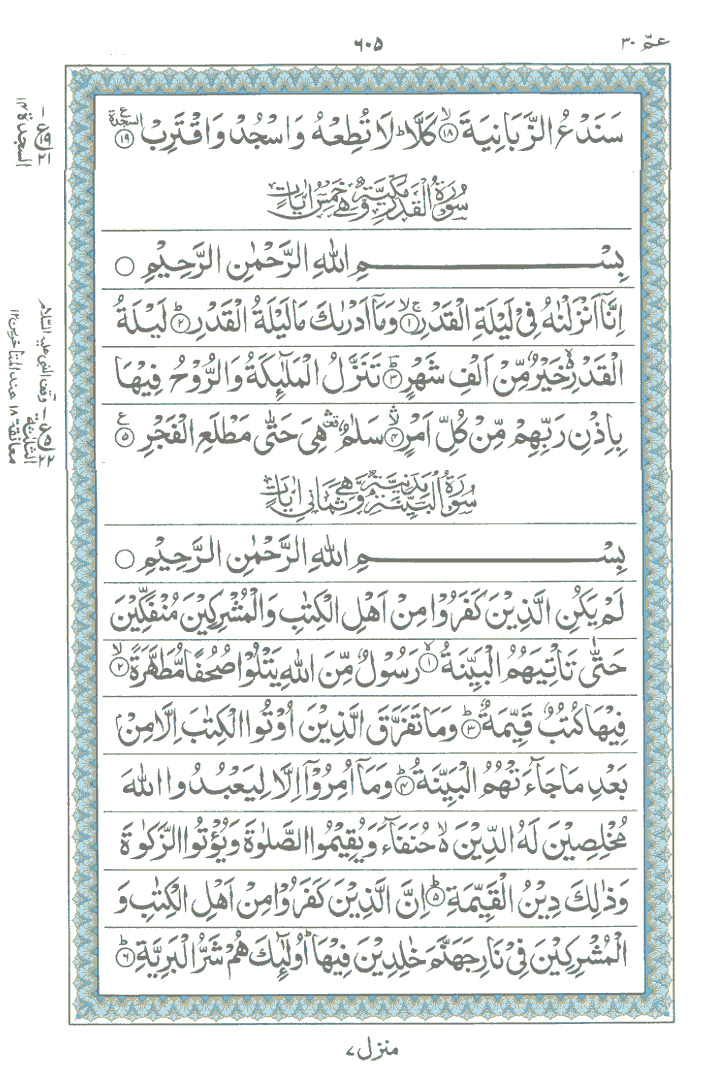 عمّ ٣٠
٦٠٥
سَنَدْعُ الزَّبَانِيَةَ ۙ﴿١٨﴾ كَلَّا ؕ لَا تُطِعْهُ وَاسْجُدْ وَاقْتَرِبْ ﴿١٩﴾
السجدة
سُوْرَةُ الْقَدْرِ مَكِّيَّةٌ وَّهِيَ خَمْسُ اٰيَاتٍ
بِسْمِ اللّٰهِ الرَّحْمٰنِ الرَّحِيْمِ ○
اِنَّاۤ اَنْزَلْنٰهُ فِيْ لَيْلَةِ الْقَدْرِ ۚۖ﴿١﴾ وَمَاۤ اَدْرٰىكَ مَا لَيْلَةُ الْقَدْرِ ؕ﴿٢﴾ لَيْلَةُ
الْقَدْرِ ۙ۬ خَيْرٌ مِّنْ اَلْفِ شَهْرٍ ؕ﴿٣﴾ تَنَزَّلُ الْمَلٰٓئِكَةُ وَالرُّوْحُ فِيْهَا
بِاِذْنِ رَبِّهِمْ مِّنْ كُلِّ اَمْرٍ ۙ﴿٤﴾ سَلٰمٌ ۛ۟ هِيَ حَتّٰى مَطْلَعِ الْفَجْرِ ﴿٥﴾
سُوْرَةُ الْبَيِّنَةِ مَدَنِيَّةٌ وَّهِيَ ثَمَانِيْ اٰيَاتٍ
بِسْمِ اللّٰهِ الرَّحْمٰنِ الرَّحِيْمِ ○
لَمْ يَكُنِ الَّذِيْنَ كَفَرُوْا مِنْ اَهْلِ الْكِتٰبِ وَالْمُشْرِكِيْنَ مُنْفَكِّيْنَ
حَتّٰى تَاْتِيَهُمُ الْبَيِّنَةُ ۙ﴿١﴾ رَسُوْلٌ مِّنَ اللّٰهِ يَتْلُوْا صُحُفًا مُّطَهَّرَةً ۙ﴿٢﴾
فِيْهَا كُتُبٌ قَيِّمَةٌ ؕ﴿٣﴾ وَمَا تَفَرَّقَ الَّذِيْنَ اُوْتُوا الْكِتٰبَ اِلَّا مِنْۢ
بَعْدِ مَا جَآءَتْهُمُ الْبَيِّنَةُ ؕ﴿٤﴾ وَمَاۤ اُمِرُوْۤا اِلَّا لِيَعْبُدُوا اللّٰهَ
مُخْلِصِيْنَ لَهُ الدِّيْنَ ۙ۬ حُنَفَآءَ وَيُقِيْمُوا الصَّلٰوةَ وَيُؤْتُوا الزَّكٰوةَ
وَذٰلِكَ دِيْنُ الْقَيِّمَةِ ؕ﴿٥﴾ اِنَّ الَّذِيْنَ كَفَرُوْا مِنْ اَهْلِ الْكِتٰبِ وَ
الْمُشْرِكِيْنَ فِيْ نَارِ جَهَنَّمَ خٰلِدِيْنَ فِيْهَا ؕ اُولٰٓئِكَ هُمْ شَرُّ الْبَرِيَّةِ ؕ﴿٦﴾
السجدة ١٤
وقف النبي عليه السّلام
معانقة ١٨ عند المتأخرين ١٢
منزل ٧